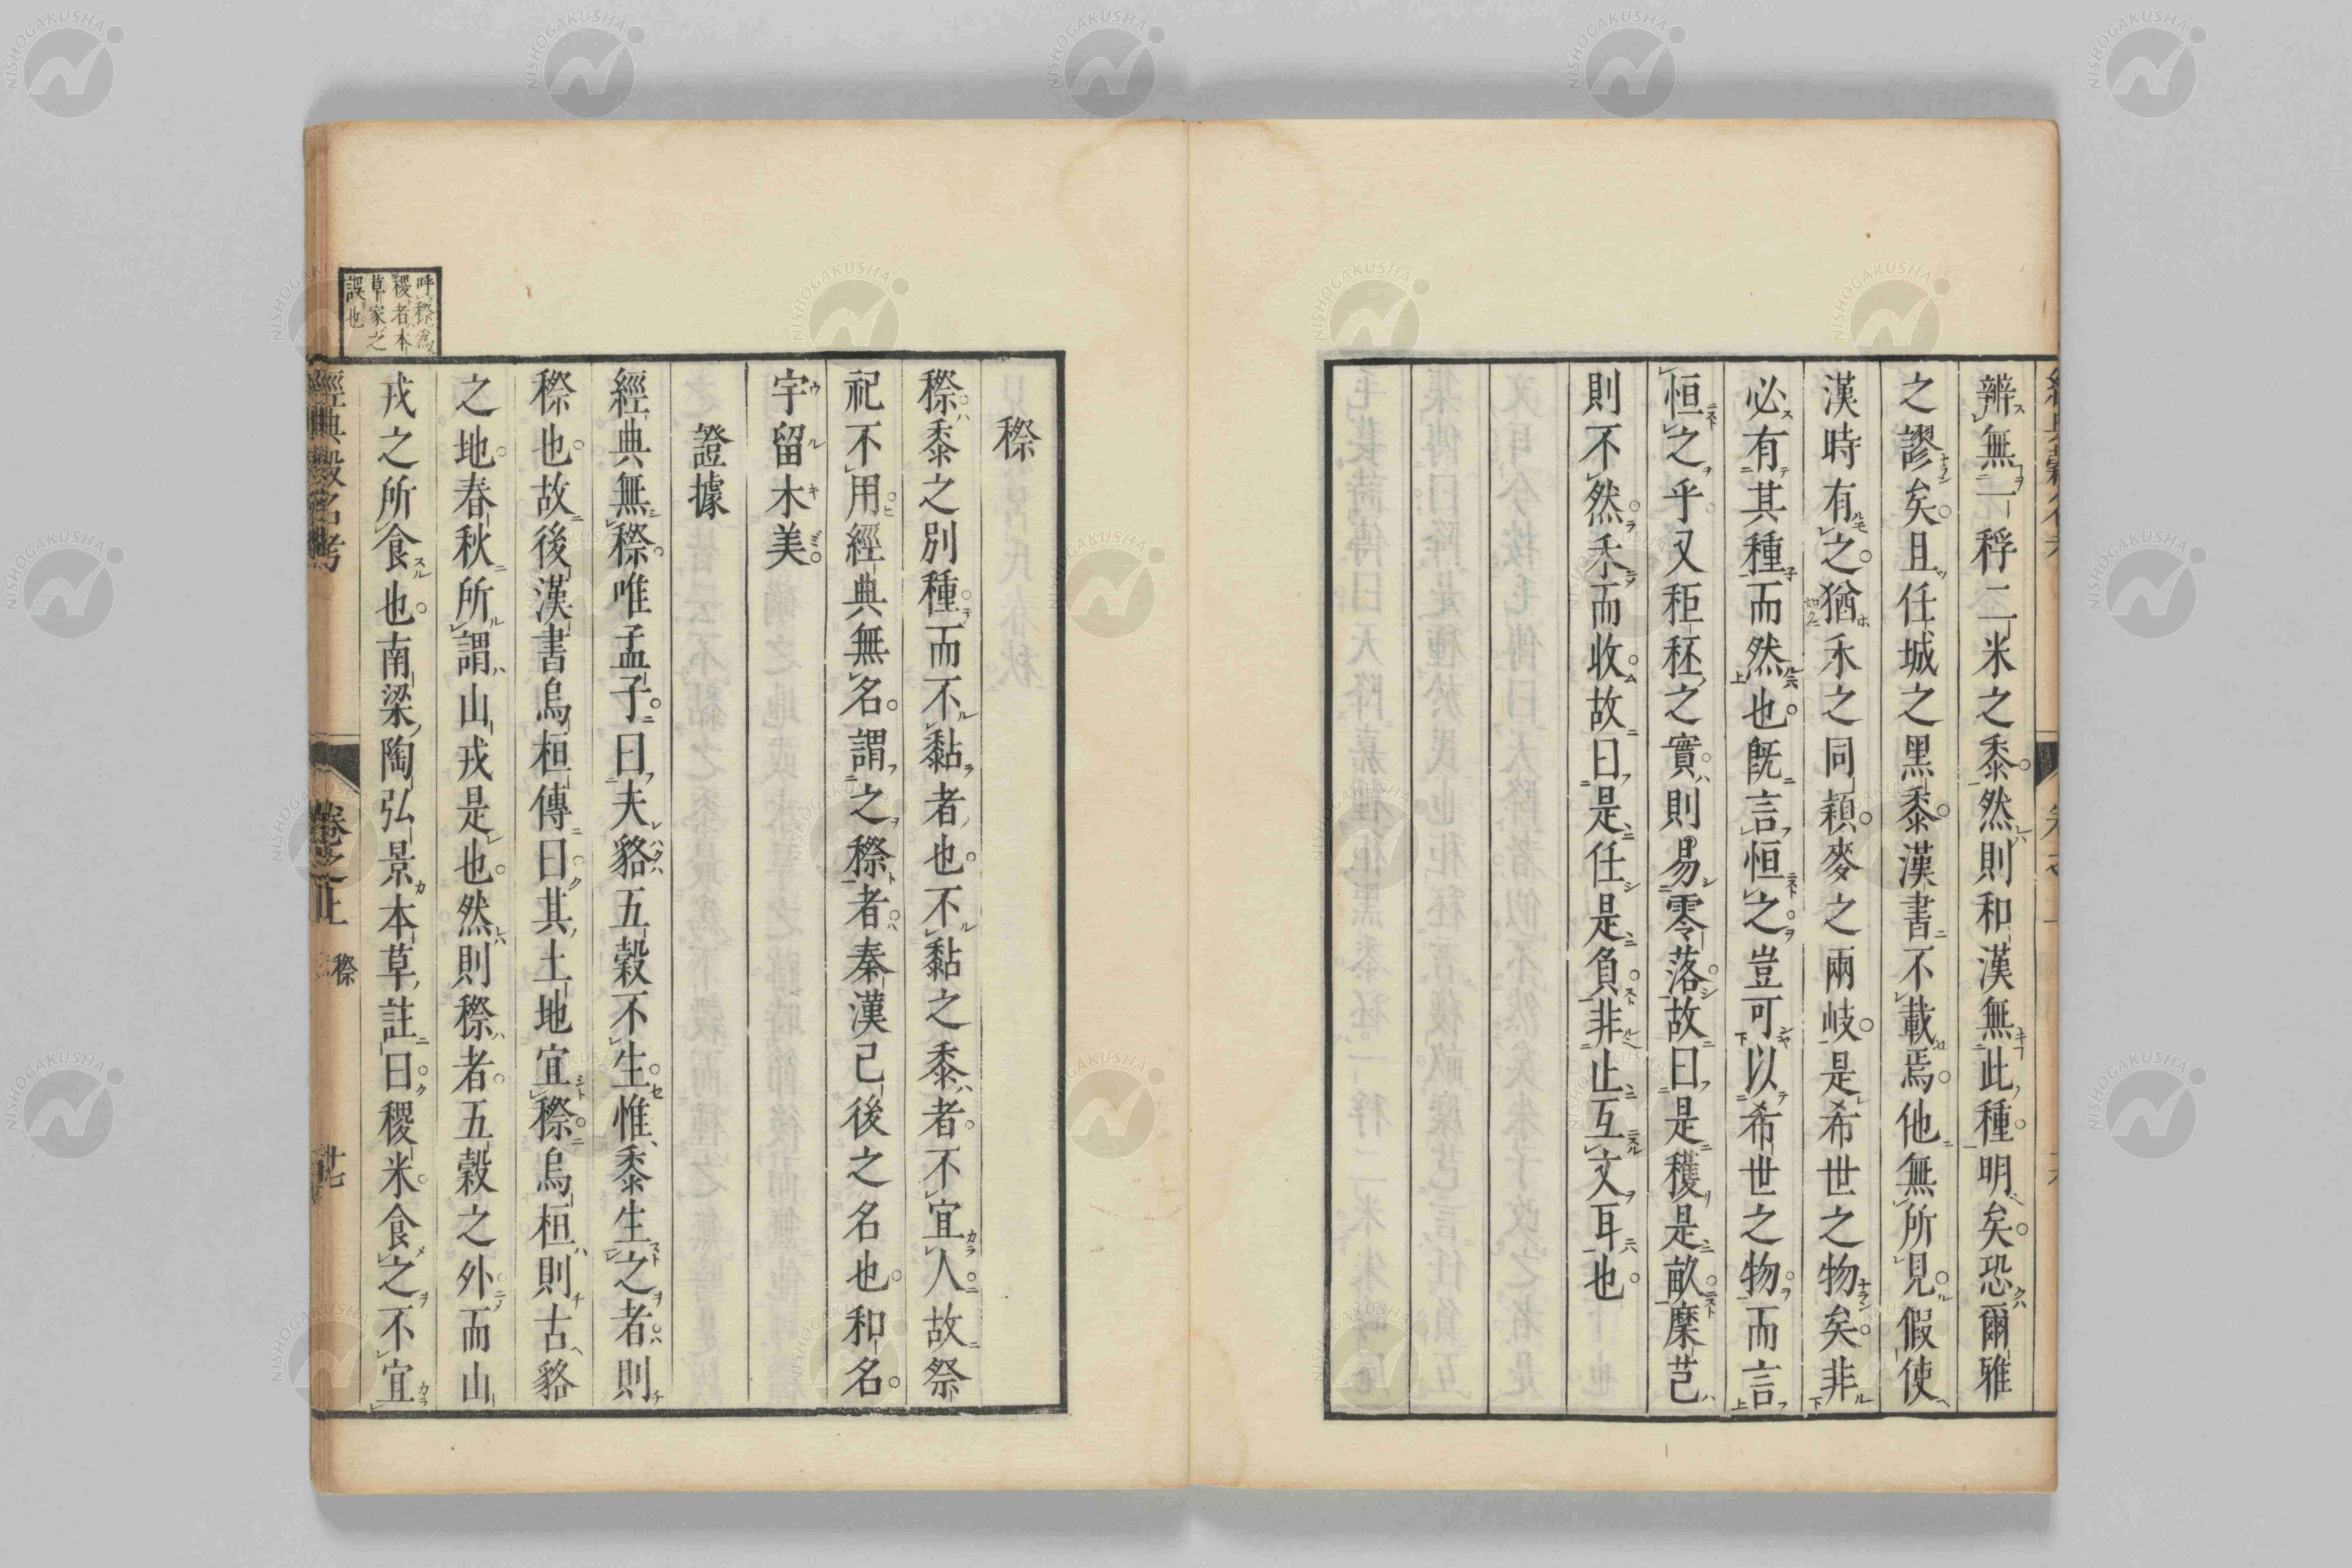 辨無一稃二米之黍然則和漢無此種明矣恐爾雅
之謬矣且任城之黑黍漢書不載焉他無所見假使
漢時有之猶禾之同穎麥之兩岐是希世之物矣非
必有其種而然也既言恒之豈可以希世之物而言
恒之乎又秬秠之實則易零落故曰是穫是畝穈芑
則不然禾而收故曰是任是負非止互文耳也
穄
穄黍之別種而不黏者也不黏之黍者不宜人故祭
祀不用經典無名謂之穄者秦漢已後之名也和名
宇留木美
證據
經典無穄唯孟子曰夫貉五穀不生惟黍生之者則
穄也故後漢書烏桓傳曰其土地宜穄烏桓則古貉
之地春秋所謂山戎是也然則穄者五穀之外而山
戎之所食也南梁陶弘景本草註曰稷米食之不宜
呼穄爲
稷者本
草家之
誤也
經典穀名考 卷之上 穄 廿七
NISHOGAKUSHA